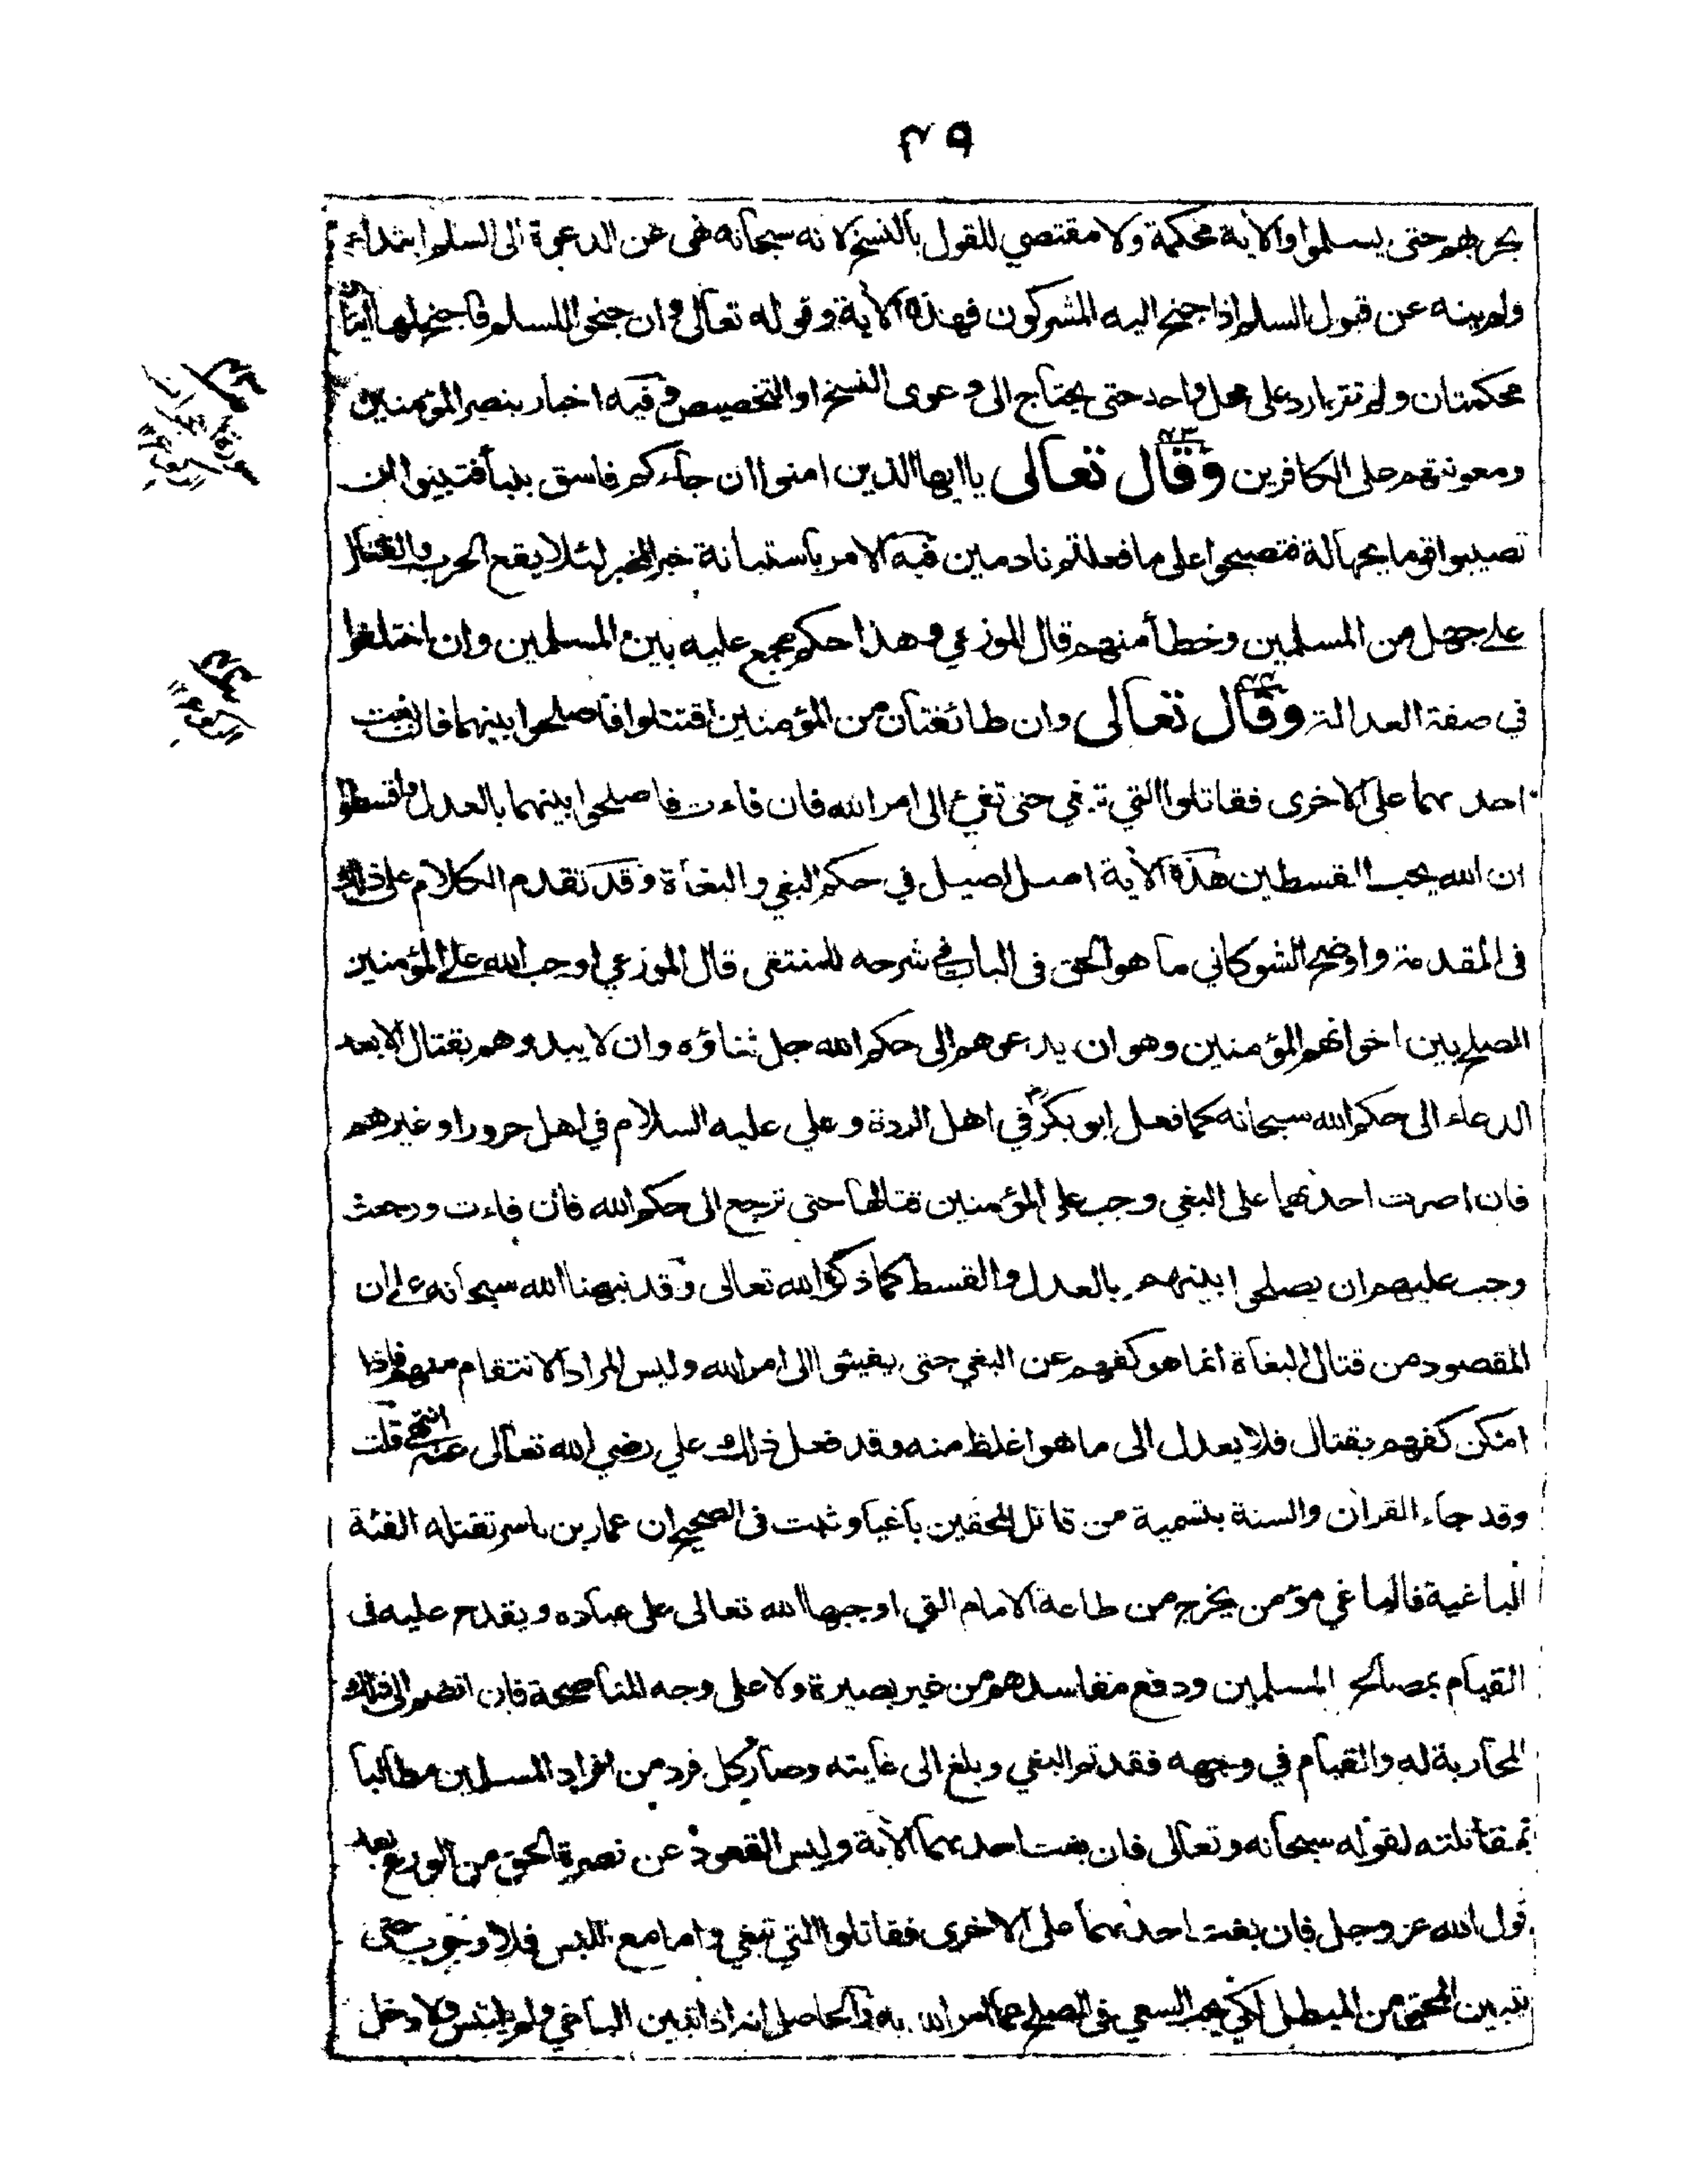 ٤٩
بحربهم حتى يسلموا والآية محكمة ولا مقتضي للقول بالنسخ لانه سبحانه نهى عن الدعوة الى السلم ابتداء
ولم ينه عن قبول السلم اذا جنح اليه المشركون فهذه الآية وقوله تعالى وان جنحوا للسلم فاجنح لها
محكمتان ولم تتواردا على محل واحد حتى يحتاج الى دعوى النسخ او التخصيص وفيه اخبار بنصر المؤمنين
ومعونتهم على الكافرين وقال تعالى ياايها الذين امنوا ان جاءكم فاسق بنبأ فتبينوا ان
تصيبوا قوما بجهالة فتصبحوا على ما فعلتم نادمين فيه الامر باستبانة خبر المخبر لئلا يقع الحرب والقتال
على جهل من المسلمين وخطأ منهم قال الموزعي وهذا حكم مجمع عليه بين المسلمين وان اختلفوا
في صفة العدالة وقال تعالى وان طائفتان من المؤمنين اقتتلوا فاصلحوا بينهما فان بغت
احدىهما على الاخرى فقاتلوا التي تبغي حتى تفيء الى امر الله فان فاءت فاصلحوا بينهما بالعدل واقسطوا
ان الله يحب المقسطين هذه الآية اصل اصيل في حكم البغي والبغاة وقد تقدم الكلام على ذلك
فى المقدمة واوضح الشوكاني ما هو الحق فى الباب في شرحه للمنتقى قال الموزعي اوجب الله على المؤمنين
الصلح بين اخوانهم المؤمنين وهو ان يدعوهم الى حكم الله جل ثناؤه وان لا يبدوهم بقتال الا بعد
الدعاء الى حكم الله سبحانه كما فعل ابو بكر في اهل الردة وعلي عليه السلام في اهل حرورا وغيرهم
فان اصرت احدىهما على البغي وجب على المؤمنين قتالها حتى ترجع الى حكم الله فان فاءت ورجعت
وجب عليهم ان يصلحوا بينهم بالعدل والقسط كما ذكره الله تعالى وقد نبهنا الله سبحانه على ان
المقصود من قتال البغاة انما هو كفهم عن البغي حتى يفيئوا الى امر الله وليس المراد الانتقام منهم فاذا
امكن كفهم بقتال فلا يعدل الى ما هو اغلظ منه وقد فعل ذلك علي رضي الله تعالى عنه انتهى قلت
وقد جاء القران والسنة بتسمية من قاتل المحقين باغيا وثبت فى الصحيح ان عمار بن ياسر تقتله الفئة
الباغية فالباغي مؤمن يخرج من طاعة الامام التي اوجبها الله تعالى على عباده ويقدح عليه فى
القيام بمصالح المسلمين ودفع مفاسدهم من غير بصيرة ولا على وجه المناصحة فان انضم الى ذلك
المحاربة له والقيام في وجهه فقد تم البغي وبلغ الى غايته وصار كل فرد من افراد المسلمين مطالبا
بمقاتلته لقوله سبحانه وتعالى فان بغت احدىهما الآية وليس القعود عن نصرة الحق من الورع بعد
قول الله عز وجل فان بغت احدىهما على الاخرى فقاتلوا التي تبغي واما مع اللبس فلا وجوب حتى
تبين المحق من المبطل لكن يجب السعي فى الصلح كما امر الله به والحاصل انه اذا تبين الباغي ولم يلتبس ولا دخل